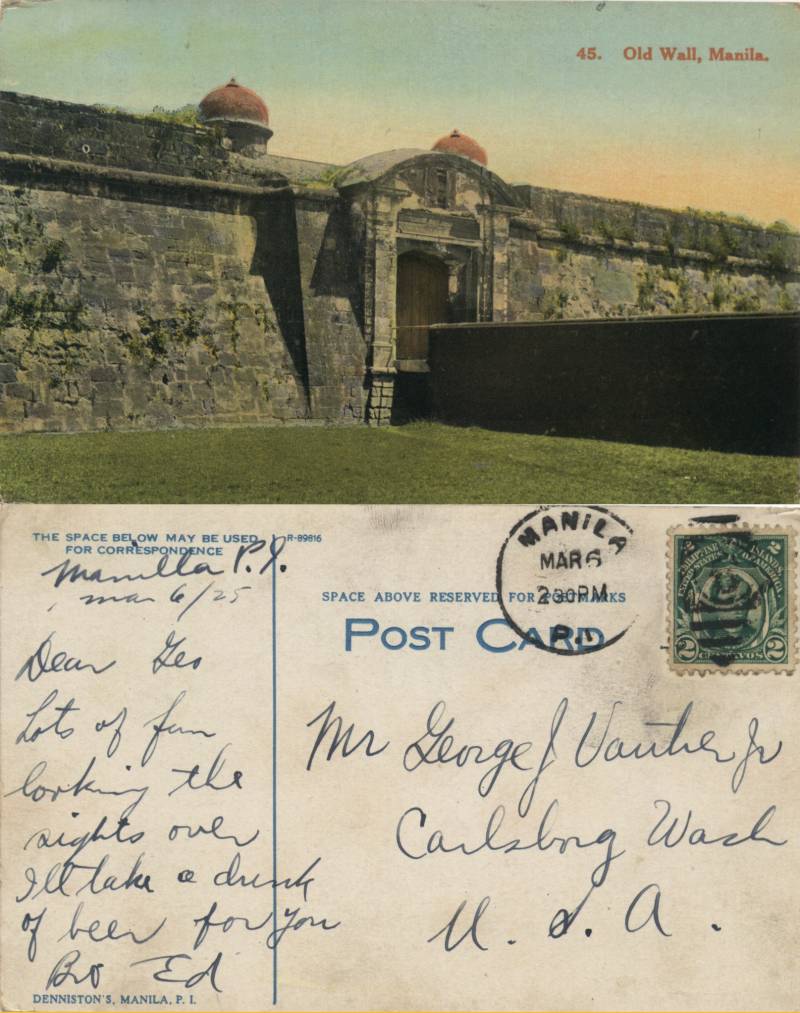 45. Old Wall, Manila.
THE SPACE BELOW MAY BE USED
FOR CORRESPONDENCE
R-89816
Manilla P.I.
Mar 6/25
SPACE ABOVE RESERVED FOR POSTMARKS
POST CARD
MANILA
MAR 6
2 30 PM
P.I.
PHILIPPINE ISLANDS
UNITED STATES OF AMERICA
2 CENTAVOS 2
Dear Geo
Lots of fun
looking the
sights over
I'll take a drink
of beer for you
Bro Ed
Mr George J Vautier Jr
Carlsborg Wash
U. S. A.
DENNISTON'S, MANILA, P. I.